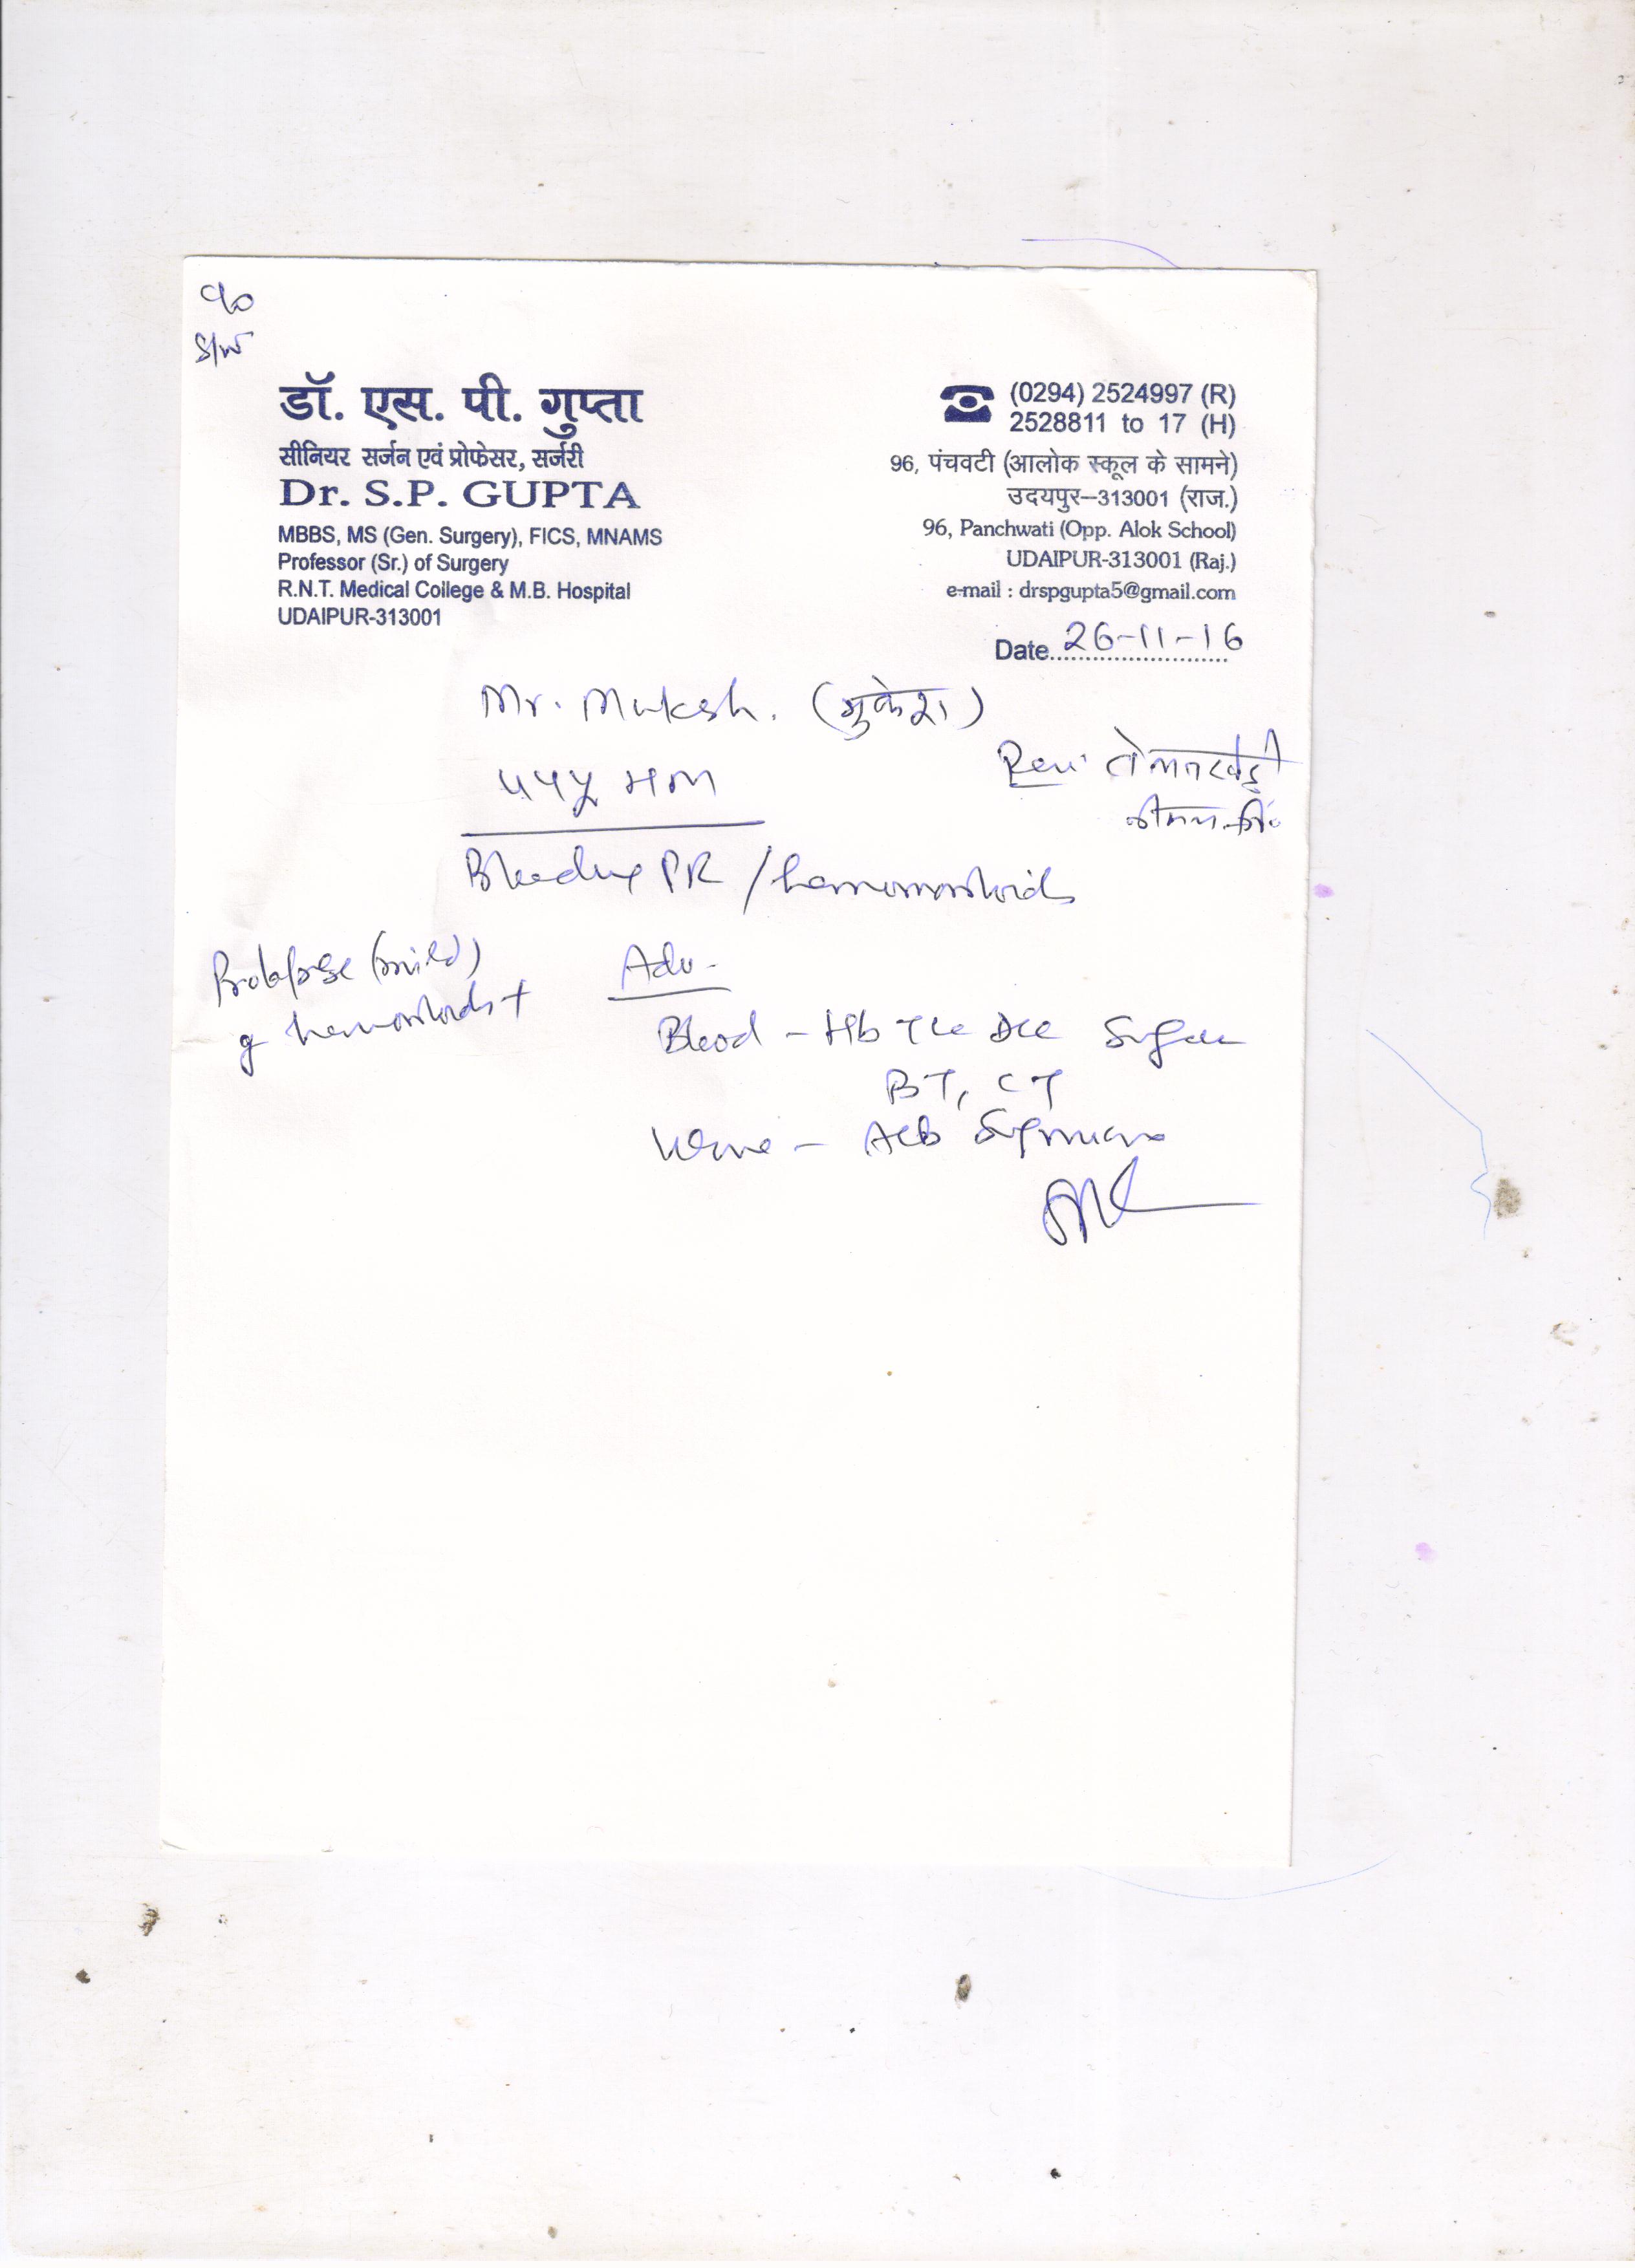 S/W
डॉ. एस. पी. गुप्ता
सीनियर सर्जन एवं प्रोफेसर, सर्जरी
Dr. S.P. GUPTA
MBBS, MS (Gen. Surgery), FICS, MNAMS
Professor (Sr.) of Surgery
R.N.T. Medical College & M.B. Hospital
UDAIPUR-313001
(0294) 2524997 (R)
2528811 to 17 (H)
96, पंचवटी (आलोक स्कूल के सामने)
उदयपुर–313001 (राज.)
96, Panchwati (Opp. Alok School)
UDAIPUR-313001 (Raj.)
e-mail : drspgupta5@gmail.com
Date 26-11-16
Mr. Mukesh. (मुकेश)
Bleeding PR / hemorrhoids
Prolapse (mild)
hemorrhoids +
Adv -
Blood - Hb TLC DLC Sugar
BT, CT
Urine - Alb Sug micro